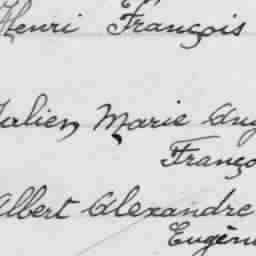 Henri François
Julien Marie Aug
Franço
Albert Alexandre
Eugène